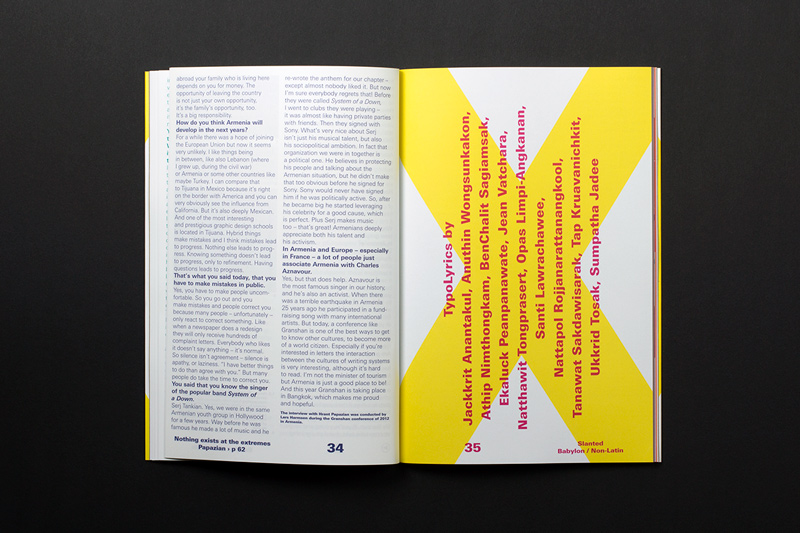 abroad your family who is living here
depends on you for money. The
opportunity of leaving the country
is not just your own opportunity,
it's the family's opportunity, too.
It's a big responsibility.
How do you think Armenia will
develop in the next years?
For a while there was a hope of joining
the European Union but now it seems
very unlikely. I like things being
in between, like also Lebanon (where
I grew up, during the civil war)
or Armenia or some other countries like
maybe Turkey. I can compare that
to Tijuana in Mexico because it's right
on the border with America and you can
very obviously see the influence from
California. But it's also deeply Mexican.
And one of the most interesting
and prestigious graphic design schools
is located in Tijuana. Hybrid things
make mistakes and I think mistakes lead
to progress. Nothing else leads to prog-
ress. Knowing something doesn't lead
to progress, only to refinement. Having
questions leads to progress.
That's what you said today, that you
have to make mistakes in public.
Yes, you have to make people uncom-
fortable. So you go out and you
make mistakes and people correct you
because many people – unfortunately –
only react to correct something. Like
when a newspaper does a redesign
they will only receive hundreds of
complaint letters. Everybody who likes
it doesn't say anything – it's normal.
So silence isn't agreement – silence is
apathy, or laziness. "I have better things
to do than agree with you." But many
people do take the time to correct you.
You said that you know the singer
of the popular band System of
a Down.
Serj Tankian. Yes, we were in the same
Armenian youth group in Hollywood
for a few years. Way before he was
famous he made a lot of music and he
re-wrote the anthem for our chapter –
except almost nobody liked it. But now
I'm sure everybody regrets that! Before
they were called System of a Down,
I went to clubs they were playing –
it was almost like having private parties
with friends. Then they signed with
Sony. What's very nice about Serj
isn't just his musical talent, but also
his sociopolitical ambition. In fact that
organization we were in together is
a political one. He believes in protecting
his people and talking about the
Armenian situation, but he didn't make
that too obvious before he signed for
Sony. Sony would never have signed
him if he was politically active. So, after
he became big he started leveraging
his celebrity for a good cause, which
is perfect. Plus Serj makes music
too – that's great! Armenians deeply
appreciate both his talent and
his activism.
In Armenia and Europe – especially
in France – a lot of people just
associate Armenia with Charles
Aznavour.
Yes, but that does help. Aznavour is
the most famous singer in our history,
and he's also an activist. When there
was a terrible earthquake in Armenia
25 years ago he participated in a fund-
raising song with many international
artists. But today, a conference like
Granshan is one of the best ways to get
to know other cultures, to become more
of a world citizen. Especially if you're
interested in letters the interaction
between the cultures of writing systems
is very interesting, although it's hard
to read. I'm not the minister of tourism
but Armenia is just a good place to be!
And this year Granshan is taking place
in Bangkok, which makes me proud
and hopeful.
The interview with Hrant Papazian was conducted by
Lars Harmsen during the Granshan conference of 2012
in Armenia.
Nothing exists at the extremes
Papazian › p 62
34
TypoLyrics by
Jackkrit Anantakul, Anuthin Wongsunkakon,
Athip Nimthongkam, BenChalit Sagiamsak,
Ekaluck Peanpanawate, Jean Vatchara,
Natthawit Tongprasert, Opas Limpi-Angkanan,
Santi Lawrachawee,
Nattapol Rojjanarattanangkool,
Tanawat Sakdawisarak, Tap Kruavanichkit,
Ukkrid Tosak, Sumpatha Jadee
35
Slanted
Babylon / Non-Latin